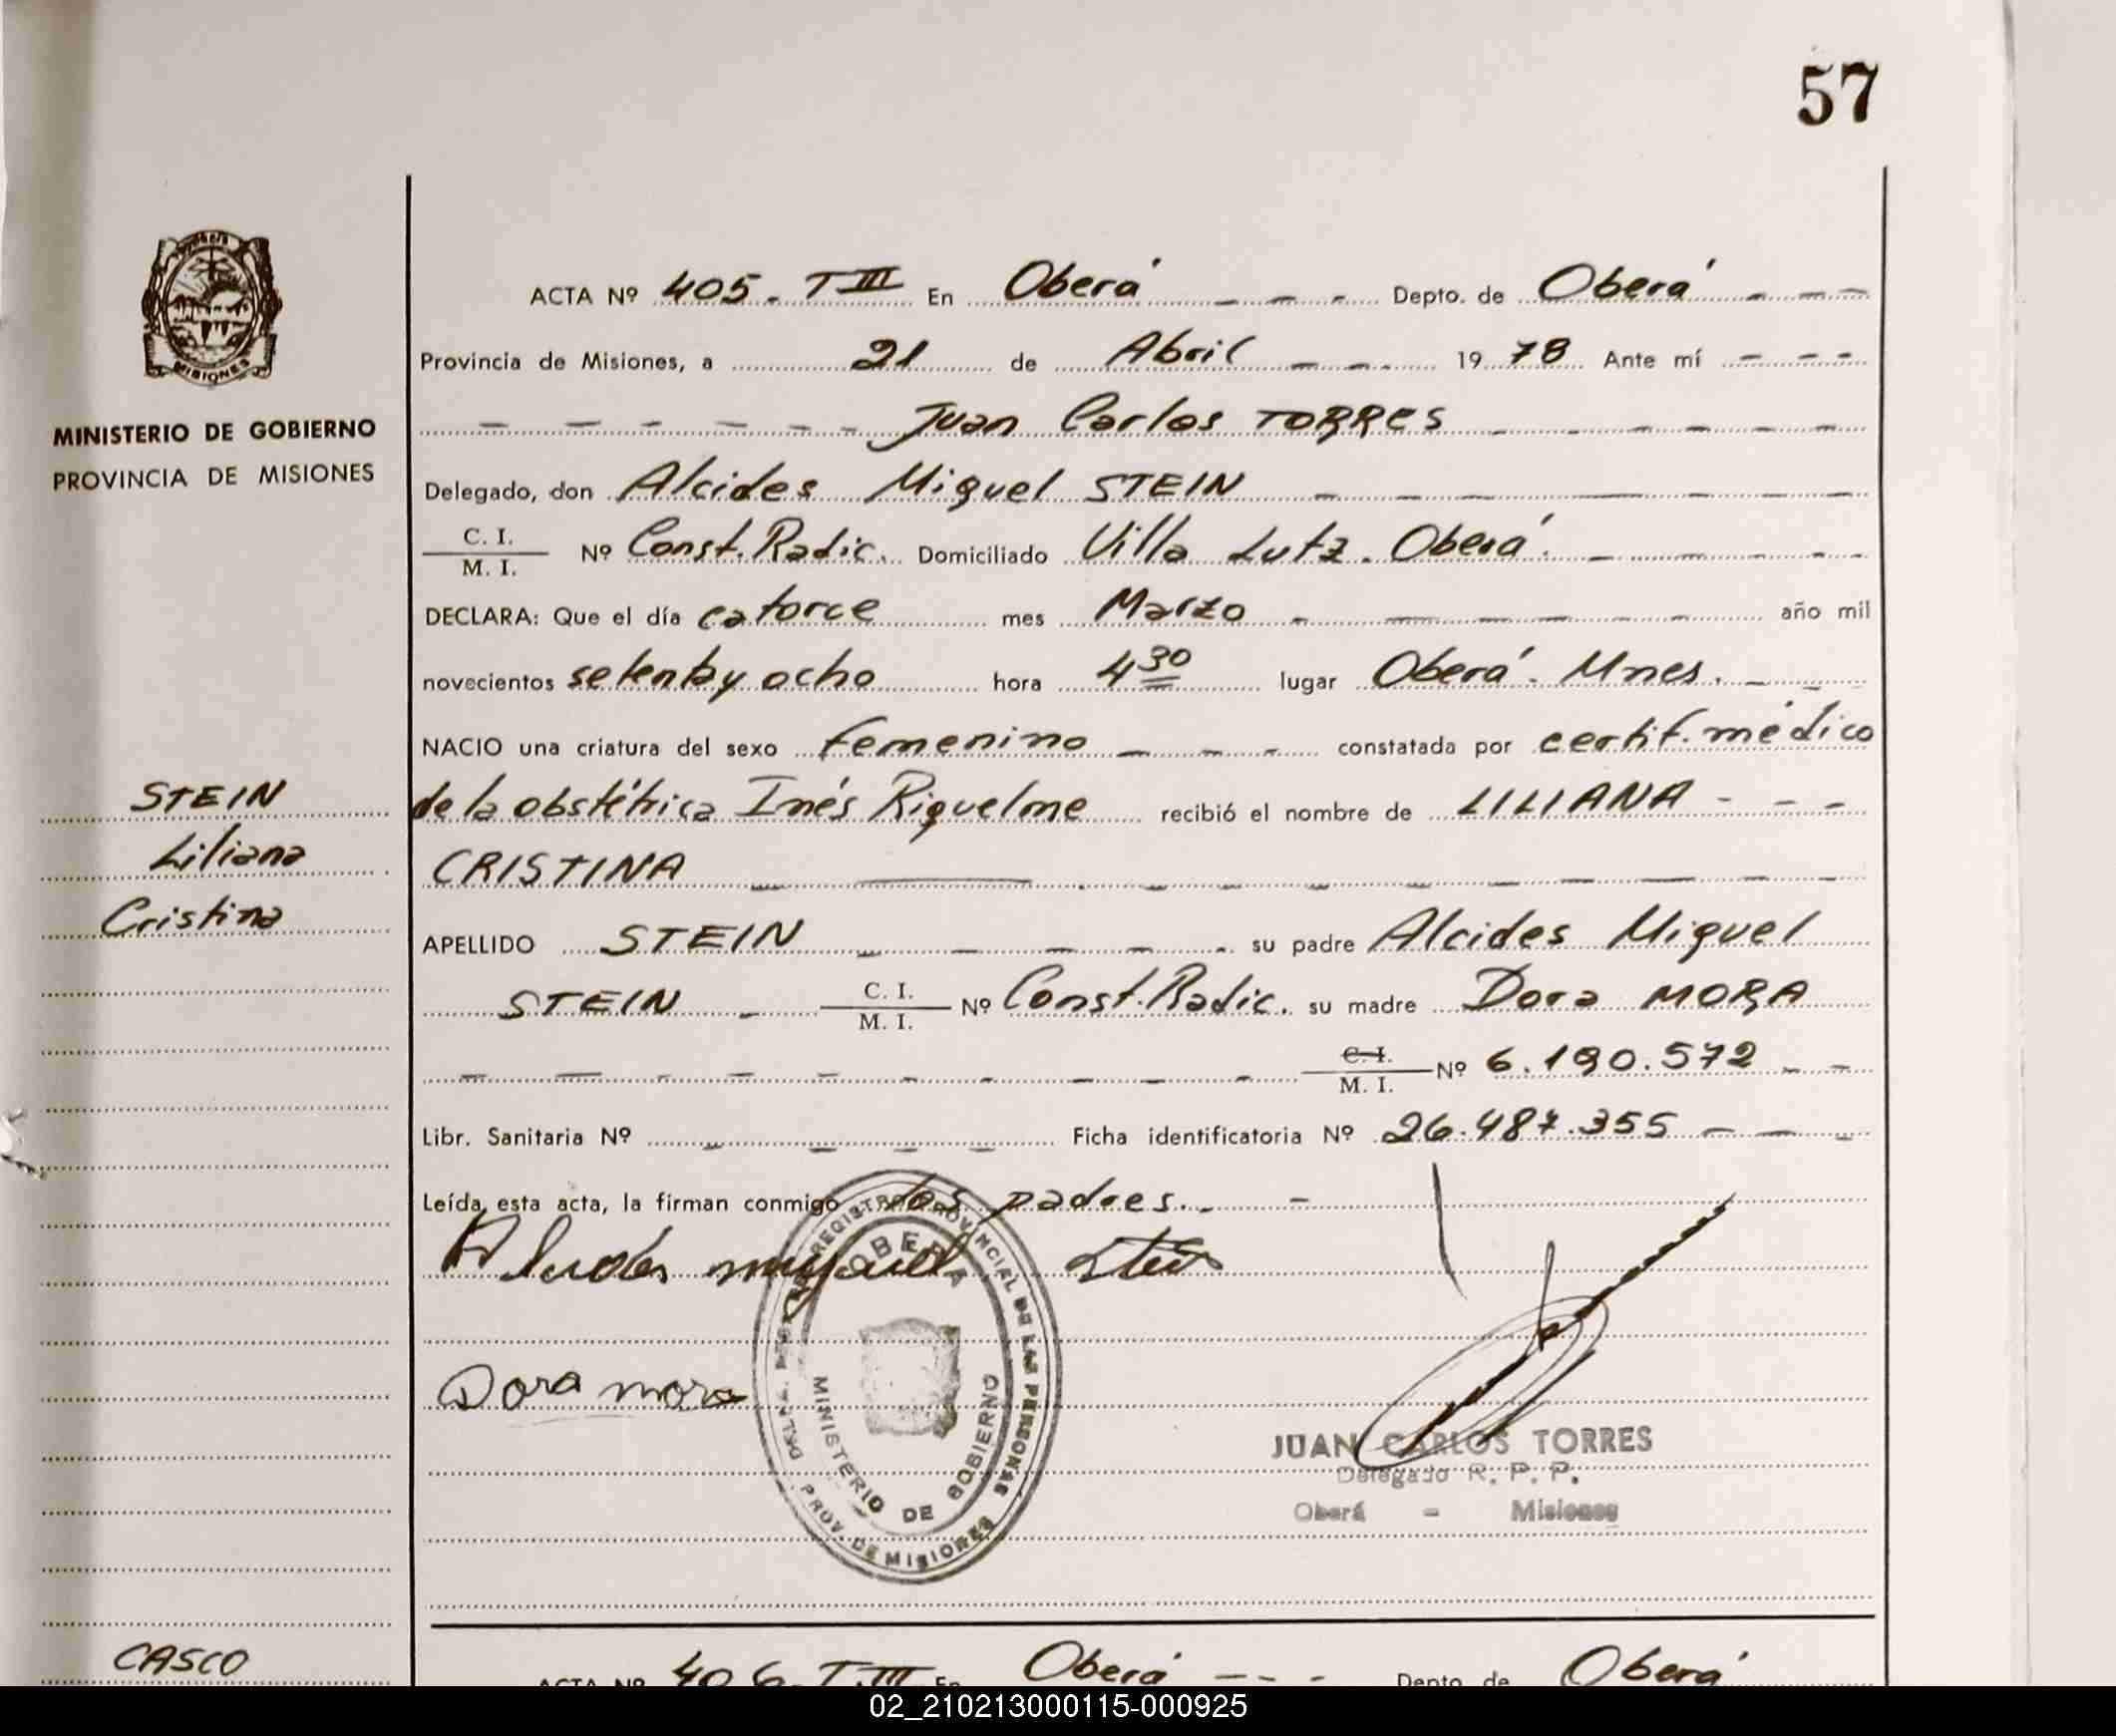 57
MISIONES
MINISTERIO DE GOBIERNO
PROVINCIA DE MISIONES
ACTA Nº 405. T III En Oberá Depto. de Oberá
Provincia de Misiones, a 21 de Abril 1978 Ante mí
Juan Carlos TORRES
Delegado, don Alcides Miguel STEIN
C. I.
M. I. Nº Const. Radic. Domiciliado Villa Lutz. Oberá.
DECLARA: Que el día catorce mes Marzo año mil
novecientos setenta y ocho hora 4 30 lugar Oberá. Mnes.
NACIO una criatura del sexo femenino constatada por certif. médico
de la obstétrica Inés Riquelme recibió el nombre de LILIANA
CRISTINA
STEIN
Liliana
Cristina
APELLIDO STEIN su padre Alcides Miguel
STEIN C. I.
M. I. Nº Const. Radic. su madre Dora MORA
C. I.
M. I. Nº 6.190.572
Libr. Sanitaria Nº Ficha identificatoria Nº 26.487.355
Leída esta acta, la firman conmigo los padres.
Alcides Miguel Stein
Dora mora
REGISTRO PROVINCIAL DE LAS PERSONAS
OBERA
MINISTERIO DE GOBIERNO
PROV. DE MISIONES
JUAN CARLOS TORRES
Delegado R. P. P.
Oberá - Misiones
CASCO
ACTA Nº 406. T III En Oberá Depto. de Oberá
02_210213000115-000925